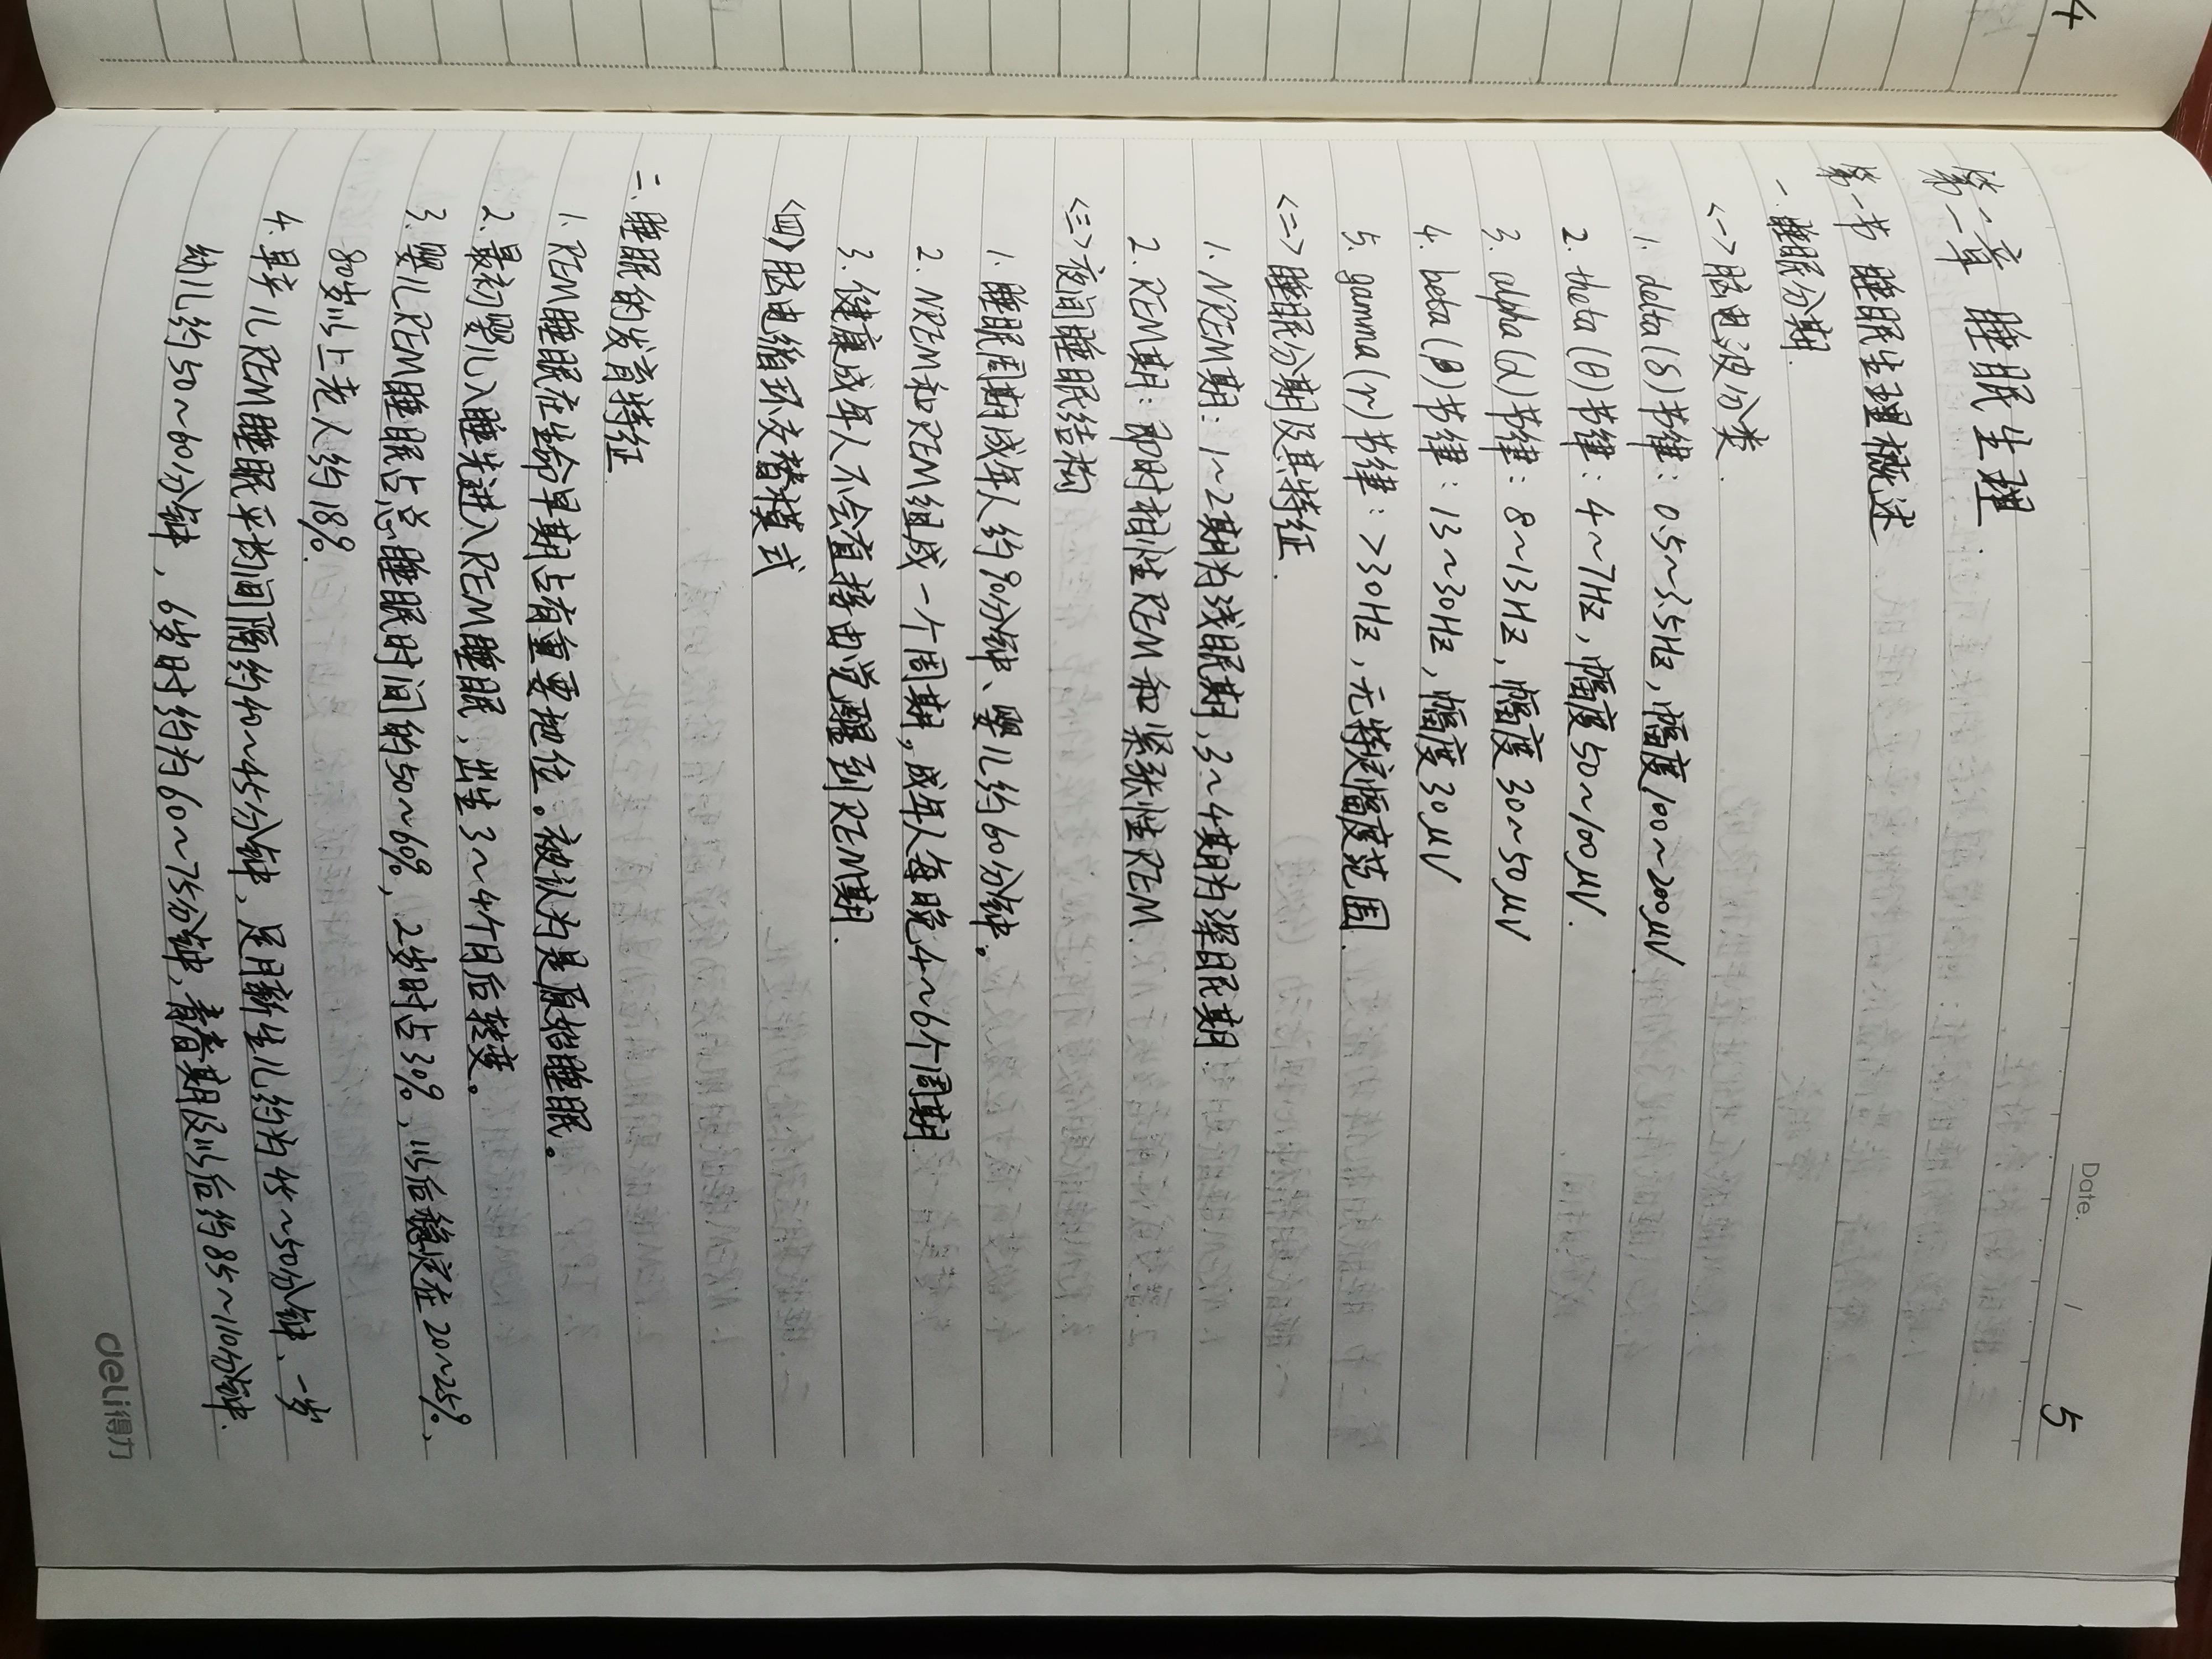 4
Date. /
5
第二章 睡眠生理
第一节 睡眠生理概述
一.睡眠分期.
<一>脑电波分类.
1. delta(δ)节律: 0.5~3.5Hz,幅度100~200μV.
2. theta(θ)节律: 4~7Hz,幅度50~100μV.
3. alpha(α)节律: 8~13Hz,幅度30~50μV
4. beta(β)节律: 13~30Hz,幅度30μV
5. gamma(γ)节律: >30Hz,无特定幅度范围.
<二>睡眠分期及其特征.
1. NREM期: 1~2期为浅眠期,3~4期为深眠期.
2. REM期: 即时相性REM和紧张性REM.
<三>夜间睡眠结构
1. 睡眠周期成年人约90分钟、婴儿约60分钟。
2. NREM和REM组成一个周期,成年人每晚4~6个周期
3. 健康成年人不会直接由觉醒到REM期.
<四>脑电循环交替模式
二.睡眠的发育特征.
1. REM睡眠在生命早期占有重要地位。被认为是原始睡眠。
2. 最初婴儿入睡先进入REM睡眠,出生3~4个月后转变。
3. 婴儿REM睡眠占总睡眠时间的50~60%,2岁时占30%、以后稳定在20~25%、
80岁以上老人约18%.
4. 早产儿REM睡眠平均间隔约40~45分钟、足月新生儿约为45~50分钟、一岁
幼儿约50~60分钟,6岁时约为60~75分钟,青春期及以后约85~110分钟.
deli得力